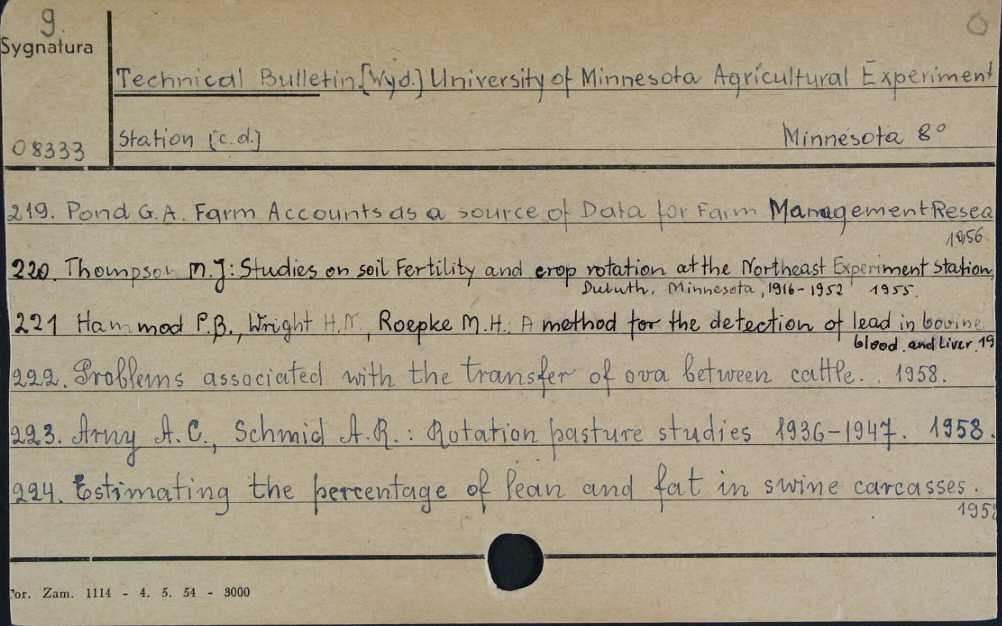 9.
Sygnatura
Technical Bulletin.[Wyd.] University of Minnesota Agricultural Experiment
08333
Station [c.d.] Minnesota 8°
219. Pond G.A. Farm Accounts as a source of Data for Farm Management Resea
1956
220. Thompson M.J: Studies on soil Fertility and crop rotation at the Northeast Experiment Station,
Duluth, Minnesota, 1916-1952 1955.
221 Hammod P.B., Wright H.N., Roepke M.H.: A method for the detection of lead in bovine
blood and Liver. 19
222. Problems associated with the transfer of ova between cattle. . 1958.
223. Arny A.C., Schmid A.R.: Rotation pasture studies 1936-1947. 1958.
224. Estimating the percentage of lean and fat in swine carcasses.
195
For. Zam. 1114 - 4. 5. 54 - 3000